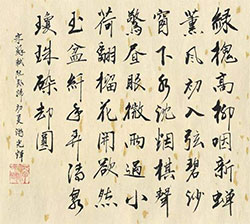 綠槐高柳咽新蟬
薰風初入弦碧沙
窗下水沈烟棋聲
驚晝眠微雨過小
荷翻榴花開欲然
玉盆纖手弄清泉
瓊珠碎却圓
宋蘇軾阮郎歸初夏